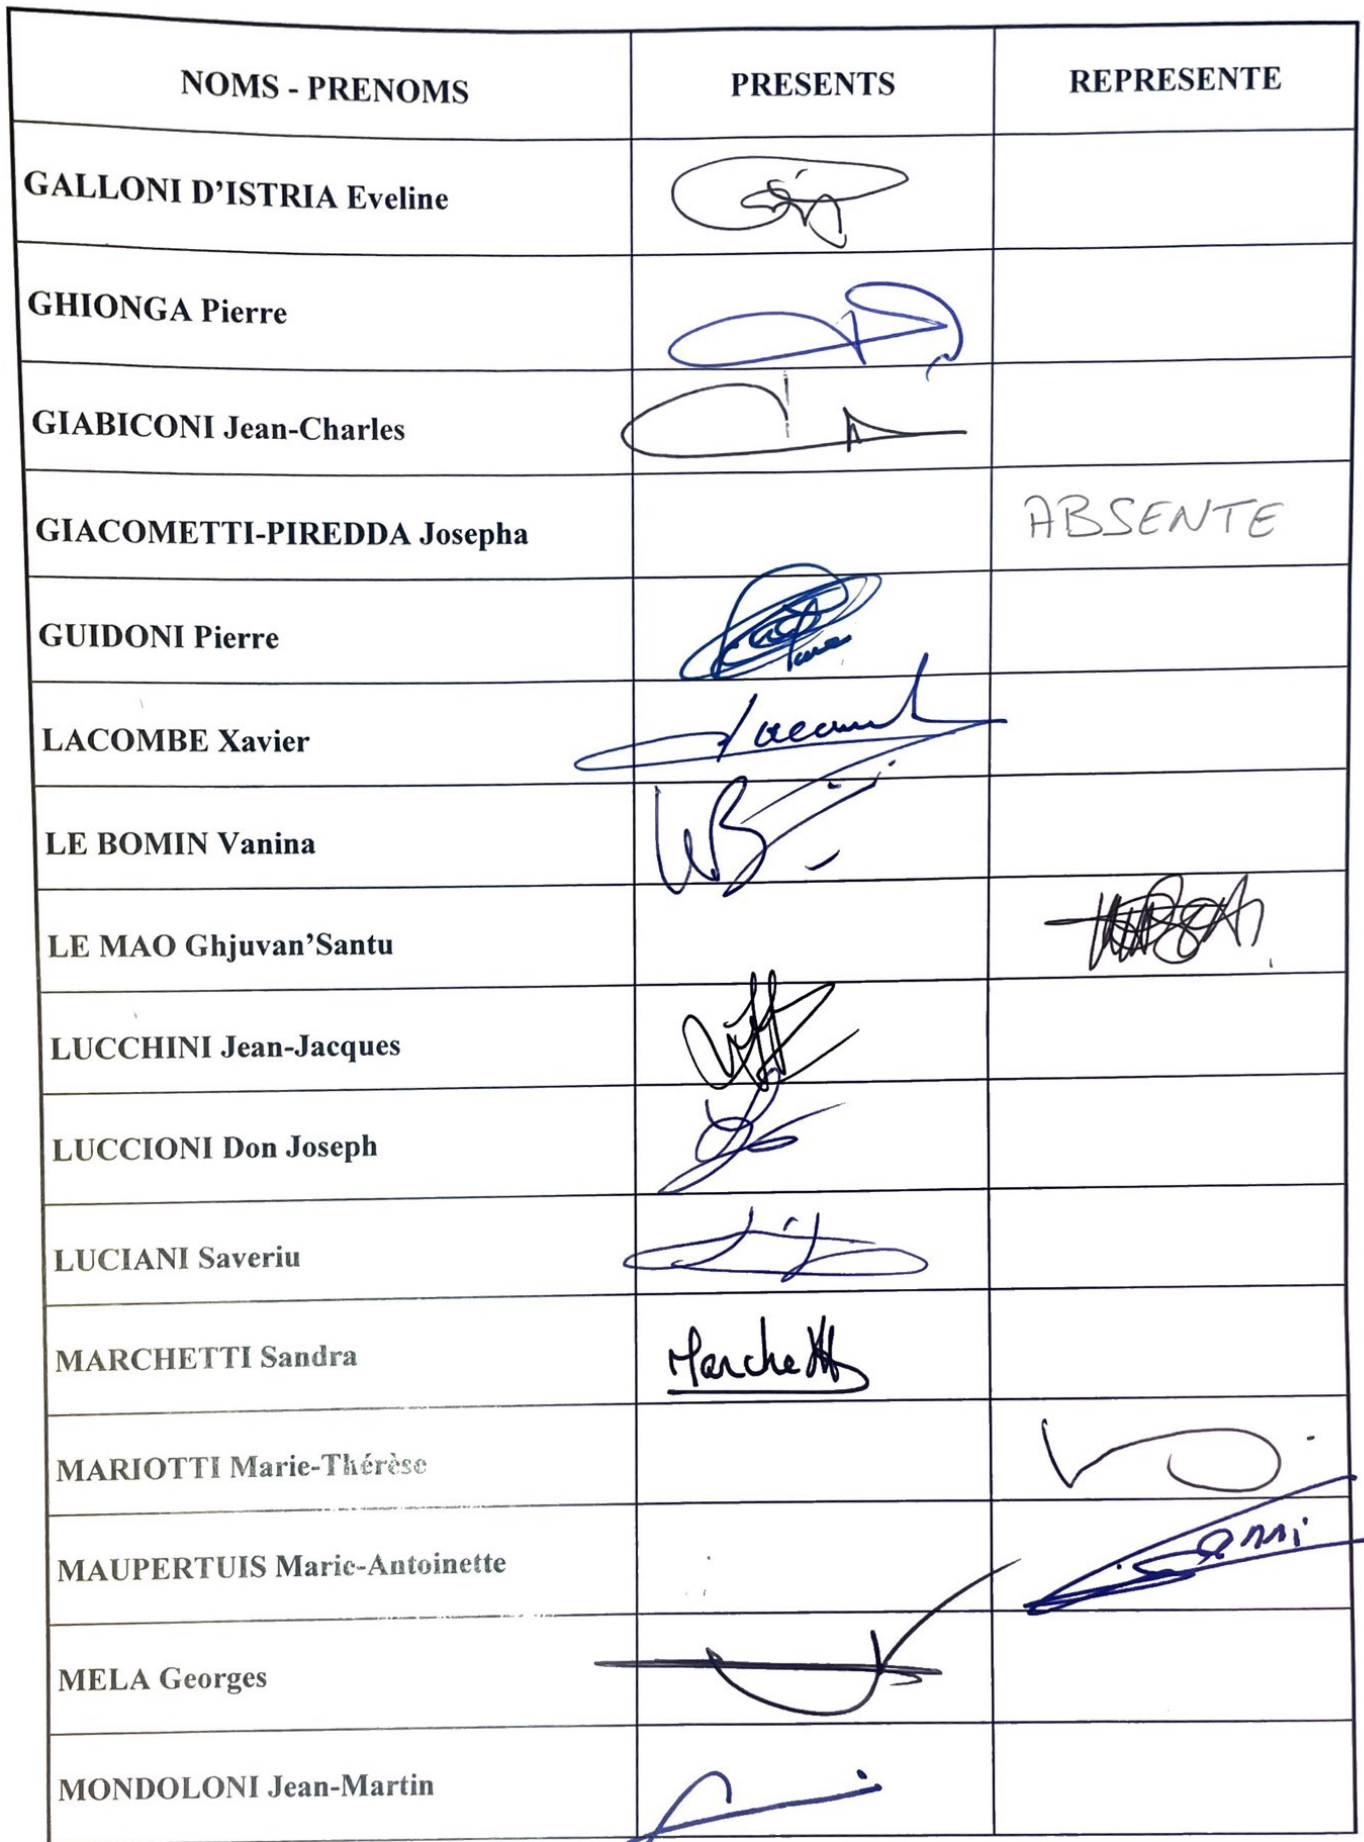 NOMS - PRENOMS PRESENTS REPRESENTE
GALLONI D'ISTRIA Eveline
GHIONGA Pierre
GIABICONI Jean-Charles
GIACOMETTI-PIREDDA Josepha ABSENTE
GUIDONI Pierre
LACOMBE Xavier
LE BOMIN Vanina
LE MAO Ghjuvan'Santu
LUCCHINI Jean-Jacques
LUCCIONI Don Joseph
LUCIANI Saveriu
MARCHETTI Sandra Marchetti
MARIOTTI Marie-Thérèse
MAUPERTUIS Marie-Antoinette
MELA Georges
MONDOLONI Jean-Martin